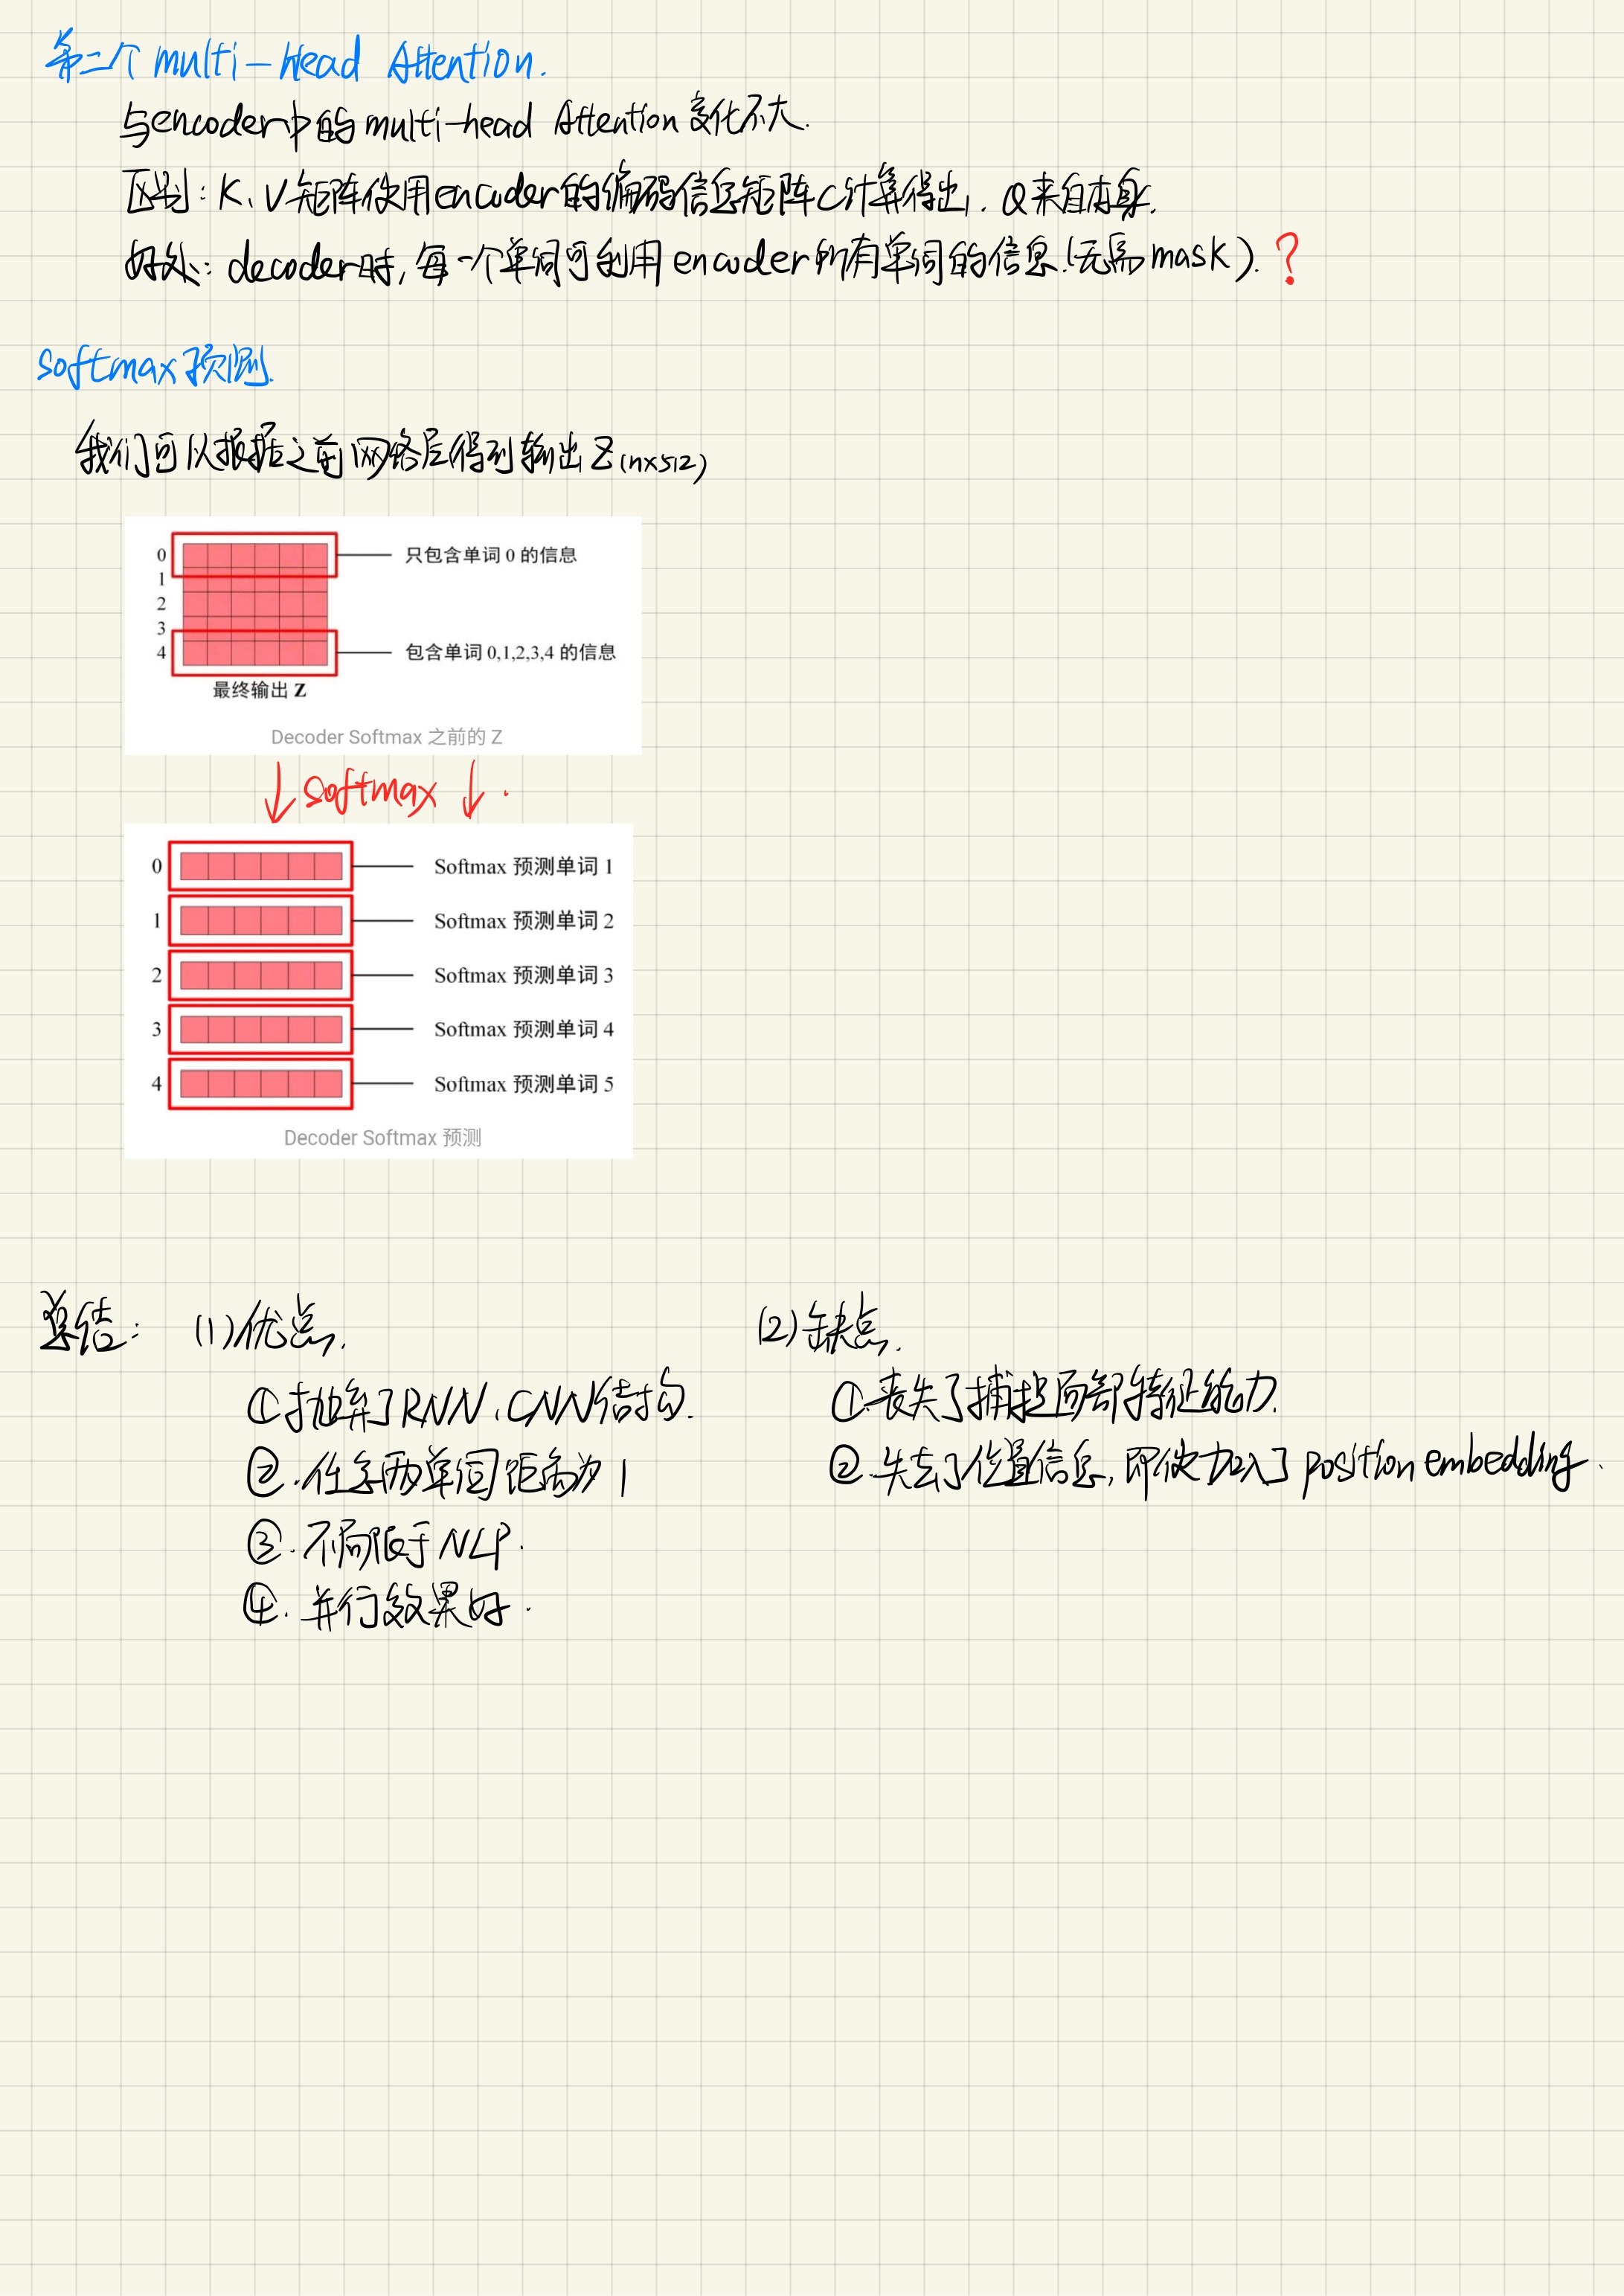 第二个multi-Head Attention.
与encoder中的multi-head Attention变化不大.
区别:K、V矩阵使用encoder的编码信息矩阵C计算得出,Q来自本身.
好处:decoder时,每一个单词可利用encoder所有单词的信息.(无需mask).?
softmax预测.
我们可以根据之前网络层得到输出Z(n×512)
0
只包含单词 0 的信息
1
2
3
4
包含单词 0,1,2,3,4 的信息
最终输出 Z
Decoder Softmax 之前的 Z
↓ Softmax ↓.
0 Softmax 预测单词 1
1 Softmax 预测单词 2
2 Softmax 预测单词 3
3 Softmax 预测单词 4
4 Softmax 预测单词 5
Decoder Softmax 预测
总结: (1)优点.
①抛弃了RNN、CNN结构.
②.任意两单词距离为1
③.不局限于NLP.
④.并行效果好.
(2)缺点.
①.丧失了捕捉局部特征能力.
②.失去了位置信息,即使加入了position embedding.